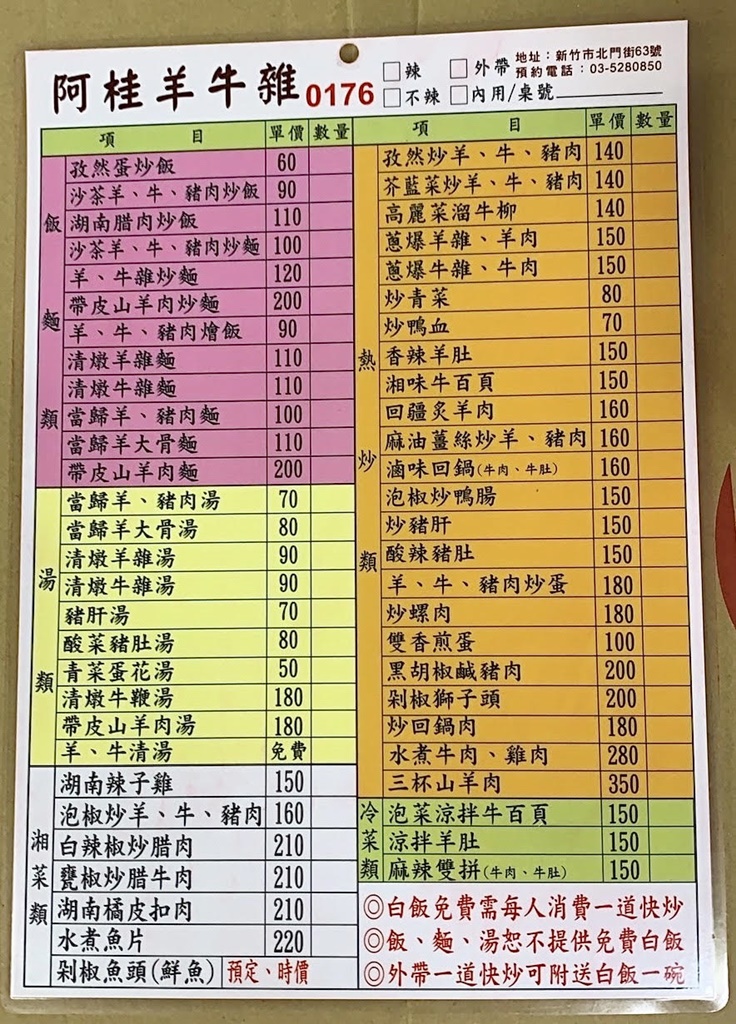 阿桂羊牛雜 0176
□辣 □外帶
□不辣 □內用/桌號
地址：新竹市北門街63號
預約電話：03-5280850
項 目 單價 數量
飯麵類
孜然蛋炒飯 60
沙茶羊、牛、豬肉炒飯 90
湖南腊肉炒飯 110
沙茶羊、牛、豬肉炒麵 100
羊、牛雜炒麵 120
帶皮山羊肉炒麵 200
羊、牛、豬肉燴飯 90
清燉羊雜麵 110
清燉牛雜麵 110
當歸羊、豬肉麵 100
當歸羊大骨麵 110
帶皮山羊肉麵 200
湯類
當歸羊、豬肉湯 70
當歸羊大骨湯 80
清燉羊雜湯 90
清燉牛雜湯 90
豬肝湯 70
酸菜豬肚湯 80
青菜蛋花湯 50
清燉牛鞭湯 180
帶皮山羊肉湯 180
羊、牛清湯 免費
湘菜類
湖南辣子雞 150
泡椒炒羊、牛、豬肉 160
白辣椒炒腊肉 210
甕椒炒腊牛肉 210
湖南橘皮扣肉 210
水煮魚片 220
剁椒魚頭(鮮魚) 預定、時價
項 目 單價 數量
熱炒類
孜然炒羊、牛、豬肉 140
芥藍菜炒羊、牛、豬肉 140
高麗菜溜牛柳 140
蔥爆羊雜、羊肉 150
蔥爆牛雜、牛肉 150
炒青菜 80
炒鴨血 70
香辣羊肚 150
湘味牛百頁 150
回疆炙羊肉 160
麻油薑絲炒羊、豬肉 160
滷味回鍋(牛肉、牛肚) 160
泡椒炒鴨腸 150
炒豬肝 150
酸辣豬肚 150
羊、牛、豬肉炒蛋 180
炒螺肉 180
雙香煎蛋 100
黑胡椒鹹豬肉 200
剁椒獅子頭 200
炒回鍋肉 180
水煮牛肉、雞肉 280
三杯山羊肉 350
冷菜類
泡菜涼拌牛百頁 150
涼拌羊肚 150
麻辣雙拼(牛肉、牛肚) 150
◎白飯免費需每人消費一道快炒
◎飯、麵、湯恕不提供免費白飯
◎外帶一道快炒可附送白飯一碗